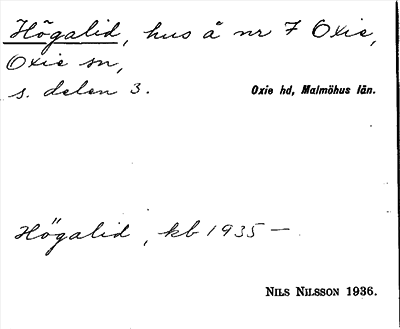 Högalid, hus å nr 7 Oxie,
Oxie sn,
s. delen 3.
Oxie hd, Malmöhus län.
Högalid, kb 1935 —
NILS NILSSON 1936.